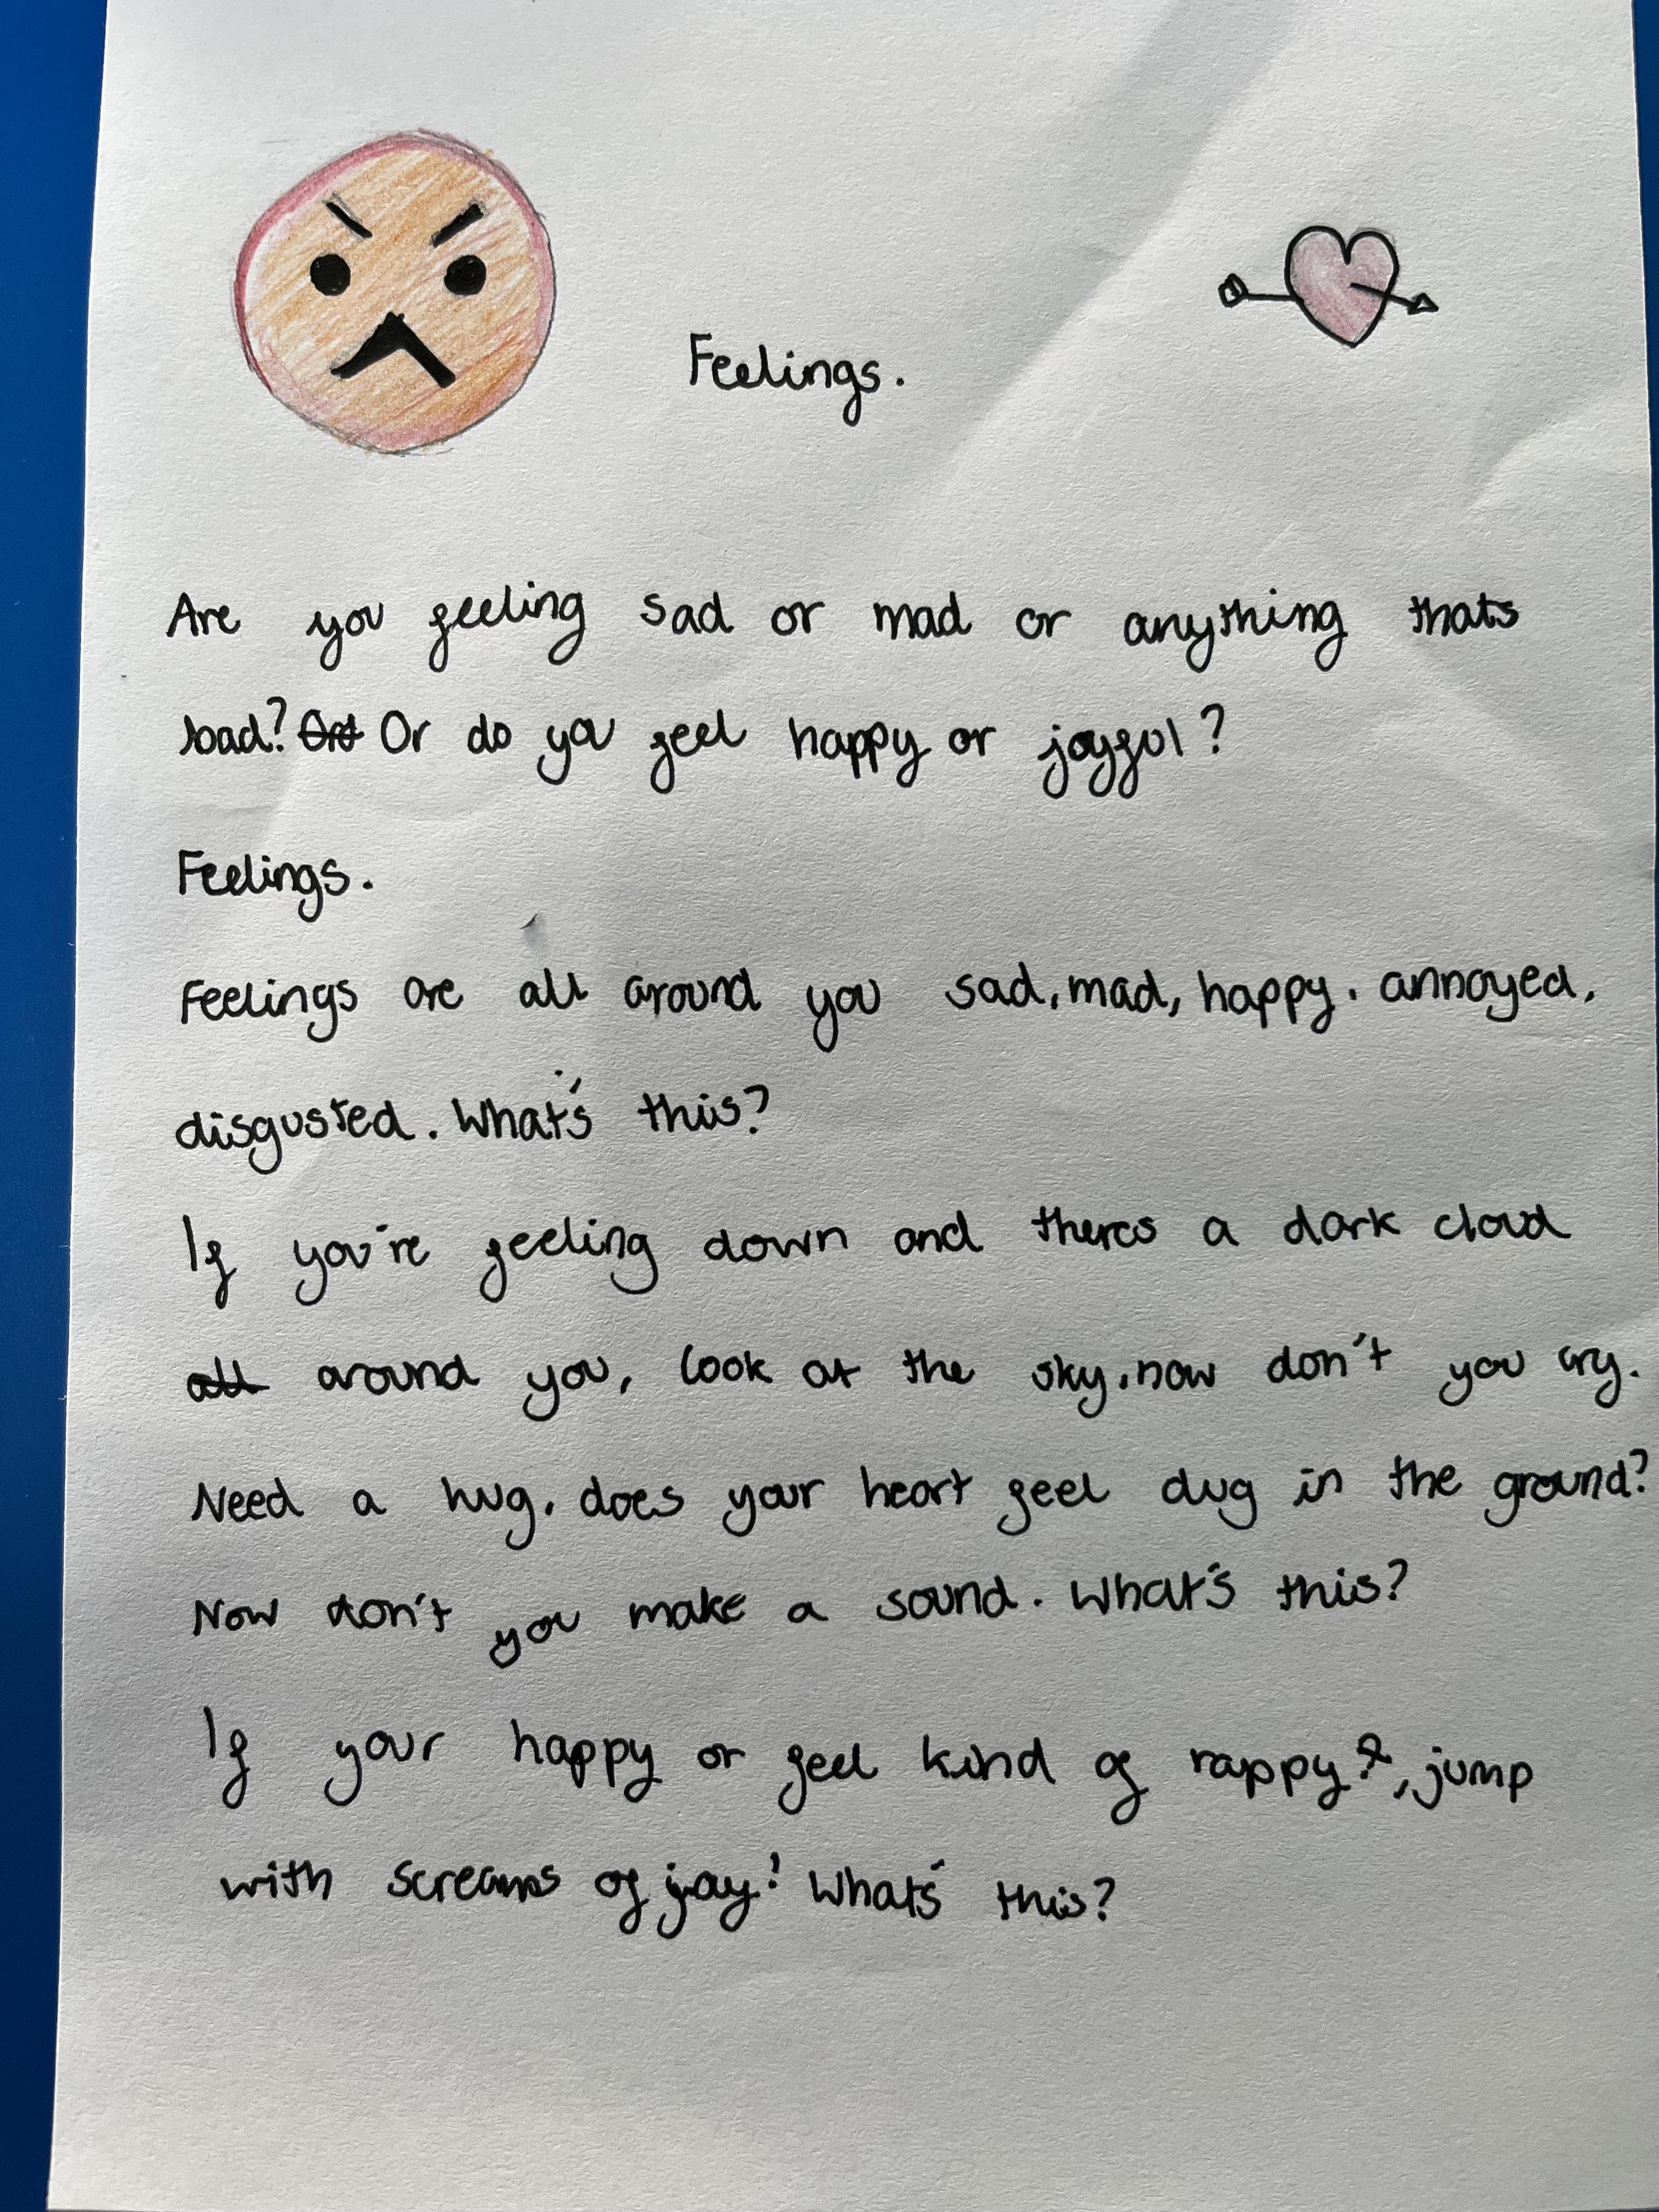 Feelings.
Are you feeling sad or mad or anything thats
bad? Or do you feel happy or joyful?
Feelings.
Feelings are all around you sad, mad, happy, annoyed,
disgusted. What's this?
If you're feeling down and theres a dark cloud
all around you, look at the sky, now don't you cry.
Need a hug, does your heart feel dug in the ground?
Now don't you make a sound. What's this?
If your happy or feel kind of rappy, jump
with screams of joy! What's this?